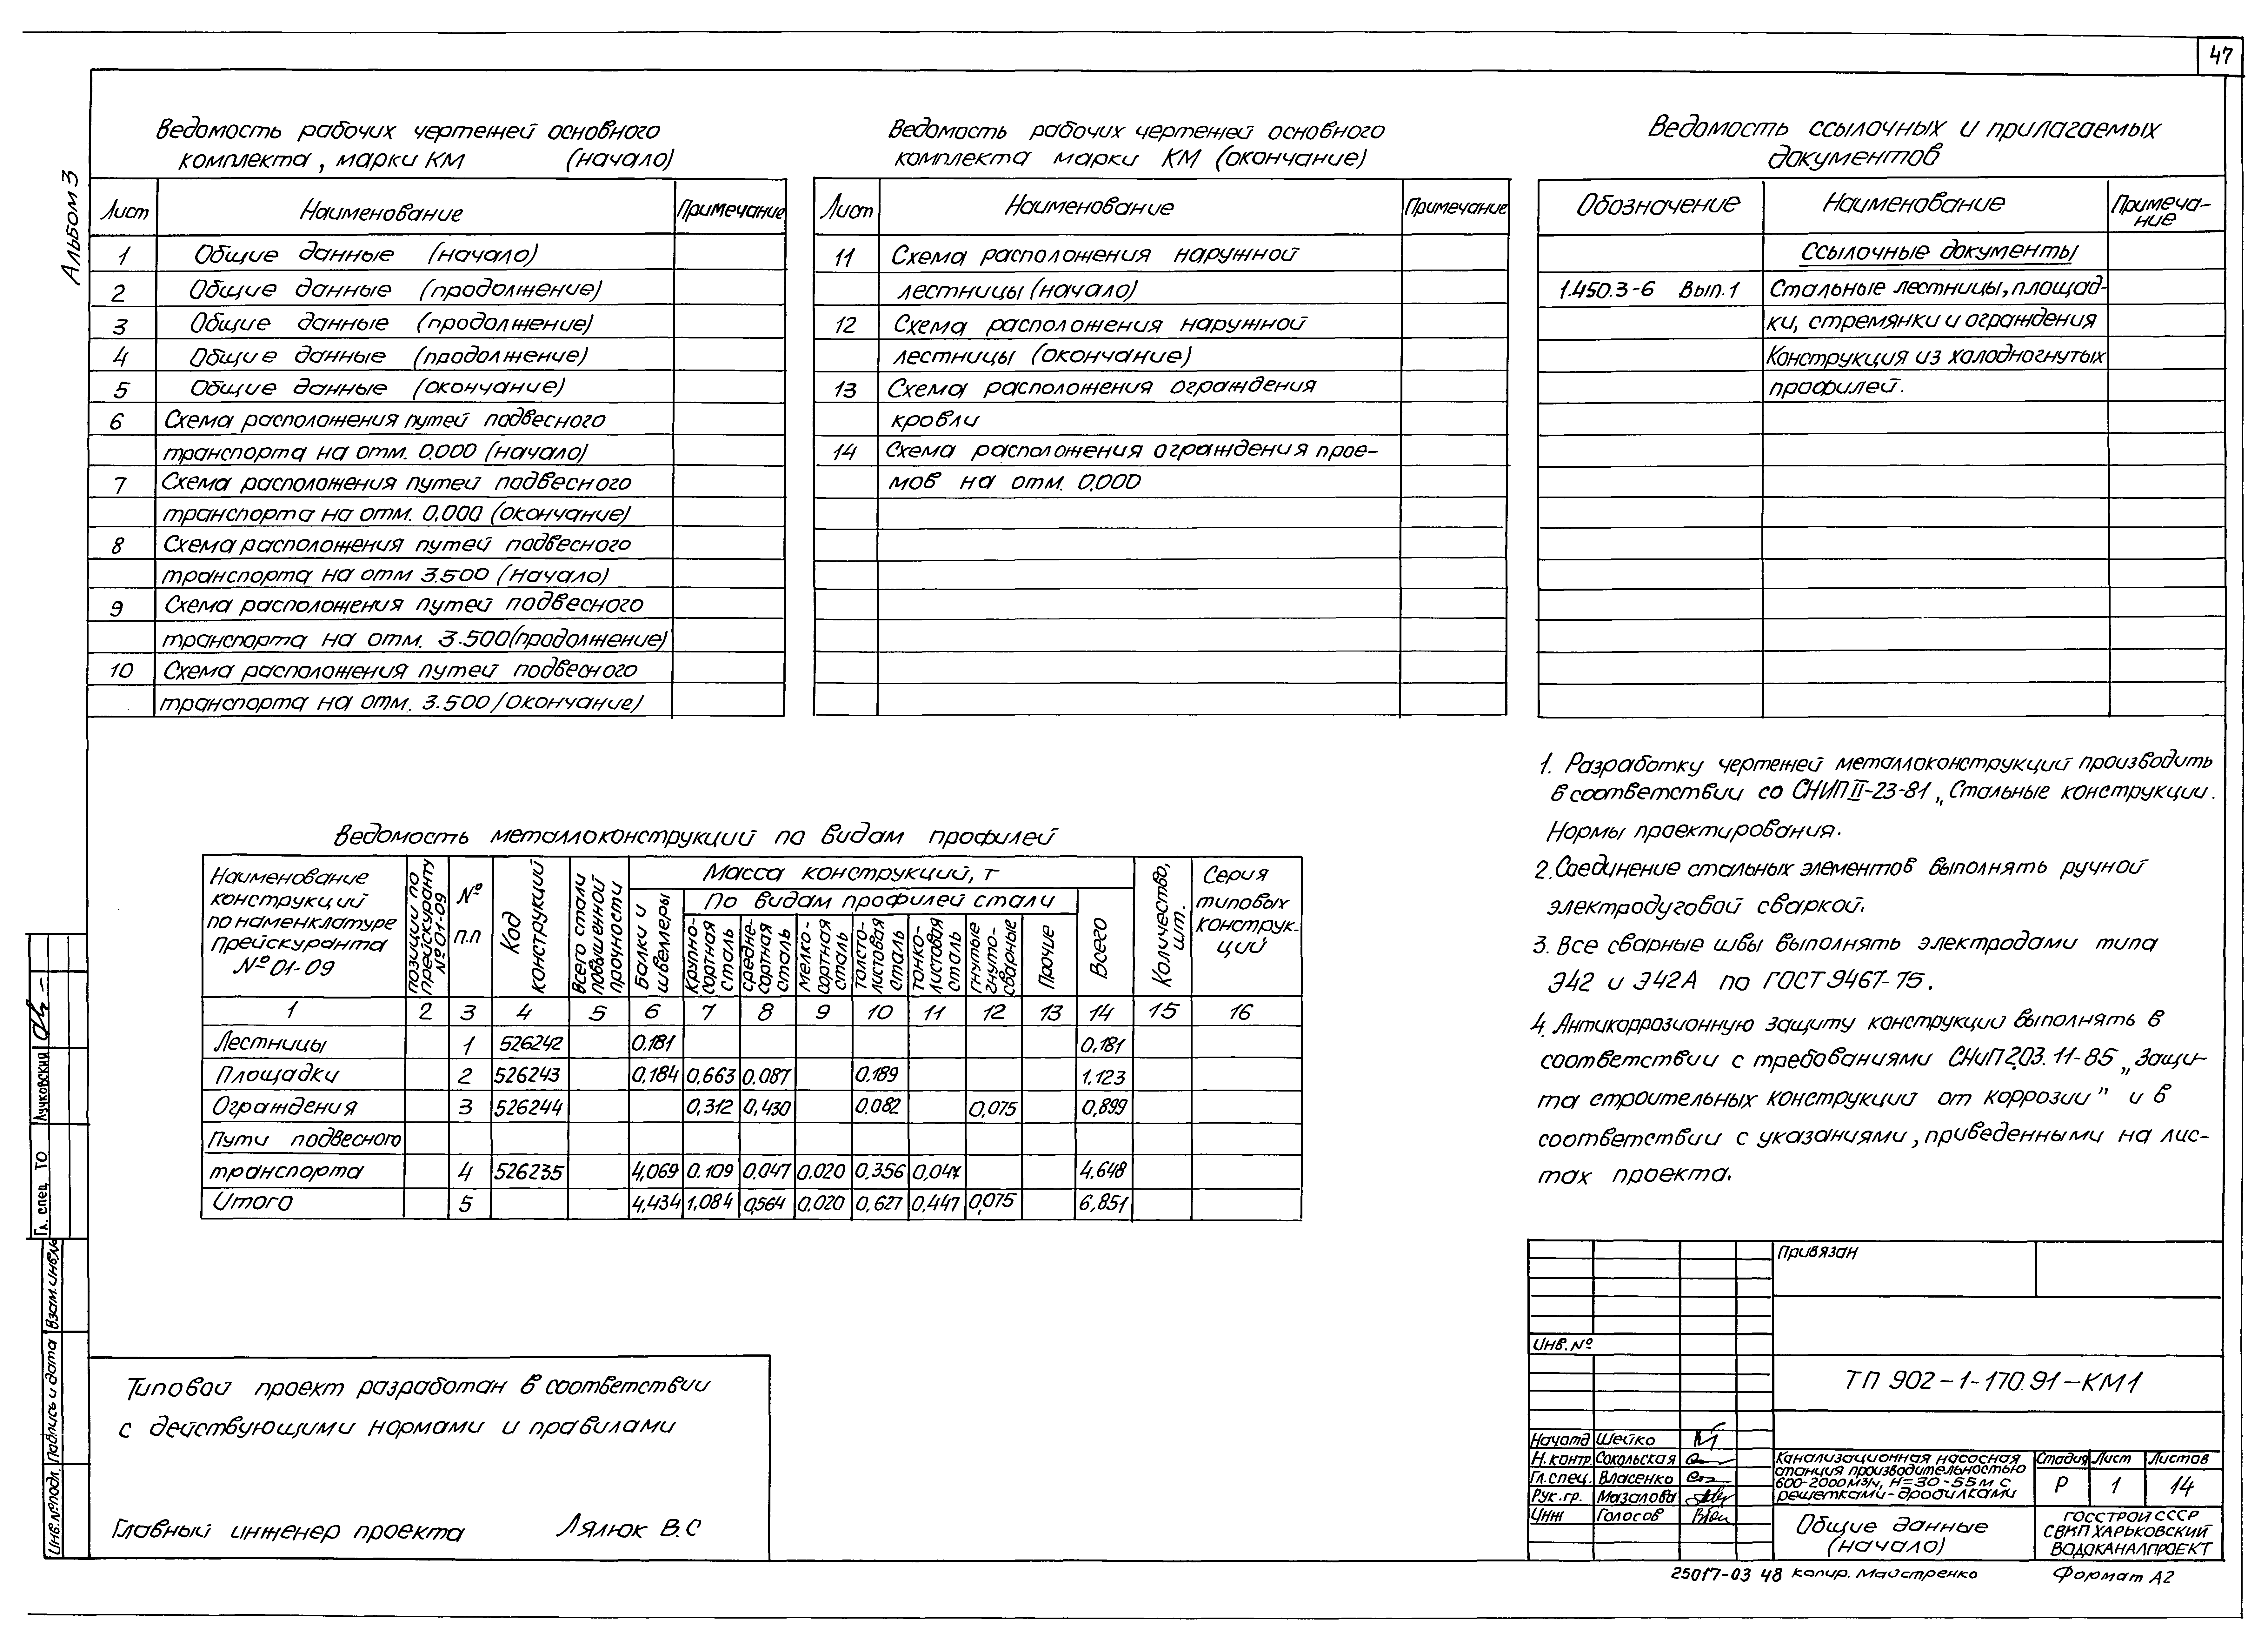 47
Альбом 3
Ведомость рабочих чертежей основного
комплекта, марки КМ (начало)
Лист Наименование Примечание
1 Общие данные (начало)
2 Общие данные (продолжение)
3 Общие данные (продолжение)
4 Общие данные (продолжение)
5 Общие данные (окончание)
6 Схема расположения путей подвесного
транспорта на отм. 0.000 (начало)
7 Схема расположения путей подвесного
транспорта на отм. 0,000 (окончание)
8 Схема расположения путей подвесного
транспорта на отм 3.500 (начало)
9 Схема расположения путей подвесного
транспорта на отм. 3.500 (продолжение)
10 Схема расположения путей подвесного
транспорта на отм. 3.500 (окончание)
Ведомость рабочих чертежей основного
комплекта марки КМ (окончание)
Лист Наименование Примечание
11 Схема расположения наружной
лестницы (начало)
12 Схема расположения наружной
лестницы (окончание)
13 Схема расположения ограждения
кровли
14 Схема расположения ограждения прое-
мов на отм. 0,000
Ведомость ссылочных и прилагаемых
документов
Обозначение Наименование Примеча-
ние
Ссылочные документы
1.450.3-6 Вып.1 Стальные лестницы, площад-
ки, стремянки и ограждения
Конструкция из холодногнутых
профилей.
1. Разработку чертежей металлоконструкций производить
в соответствии со СНИП II-23-81 „Стальные конструкции.
Нормы проектирования.
2. Соединение стальных элементов выполнять ручной
электродуговой сваркой.
3. Все сварные швы выполнять электродами типа
Э42 и Э42А по ГОСТ 9467-75.
4. Антикоррозионную защиту конструкций выполнять в
соответствии с требованиями СНиП 2.03.11-85 „Защи-
та строительных конструкций от коррозии" и в
соответствии с указаниями, приведенными на лис-
тах проекта.
Ведомость металлоконструкций по видам профилей
Наименование
конструкций
по наменклатуре
Прейскуранта
№ 01-09
позиции по
прейскуранту
№ 01-09
№
п.п
Код
конструкций
Всего стали
повышенной
прочности
Масса конструкций, т
Балки и
швеллеры
По видам профилей стали
Крупно-
сортная
сталь
средне-
сортная
сталь
мелко-
сортная
сталь
толсто-
листовая
сталь
тонко-
листовая
сталь
гнутые
гнуто-
сварные
Прочие
Всего
Количество,
шт.
Серия
типовых
конструк-
ций
1 2 3 4 5 6 7 8 9 10 11 12 13 14 15 16
Лестницы 1 526242 0.181 0,181
Площадки 2 526243 0,184 0,663 0.087 0.189 1.123
Ограждения 3 526244 0,312 0,430 0.082 0,075 0,899
Пути подвесного
транспорта 4 526235 4,069 0.109 0.047 0.020 0,356 0,047 4.648
Итого 5 4,434 1,084 0,564 0.020 0,627 0.447 0,075 6,851
Типовой проект разработан в соответствии
с действующими нормами и правилами
Главный инженер проекта Лялюк В.С
Гл. спец. ТО Лучковский
Взам.инв.№
Подпись и дата
Инв.№подл
Привязан
Инв.№
ТП 902-1-170.91-КМ1
Начотд Шейко
Н.контр. Сокольская
Гл.спец. Власенко
Рук.гр. Мазалова
Инж Голосов
Канализационная насосная
станция производительностью
600-2000м³/ч, Н=30-55м с
решетками-дробилками
Стадия Лист Листов
Р 1 14
Общие данные
(начало)
ГОССТРОЙ СССР
СВКП ХАРЬКОВСКИЙ
ВОДОКАНАЛПРОЕКТ
25017-03 48 Копир. Майстренко Формат А2